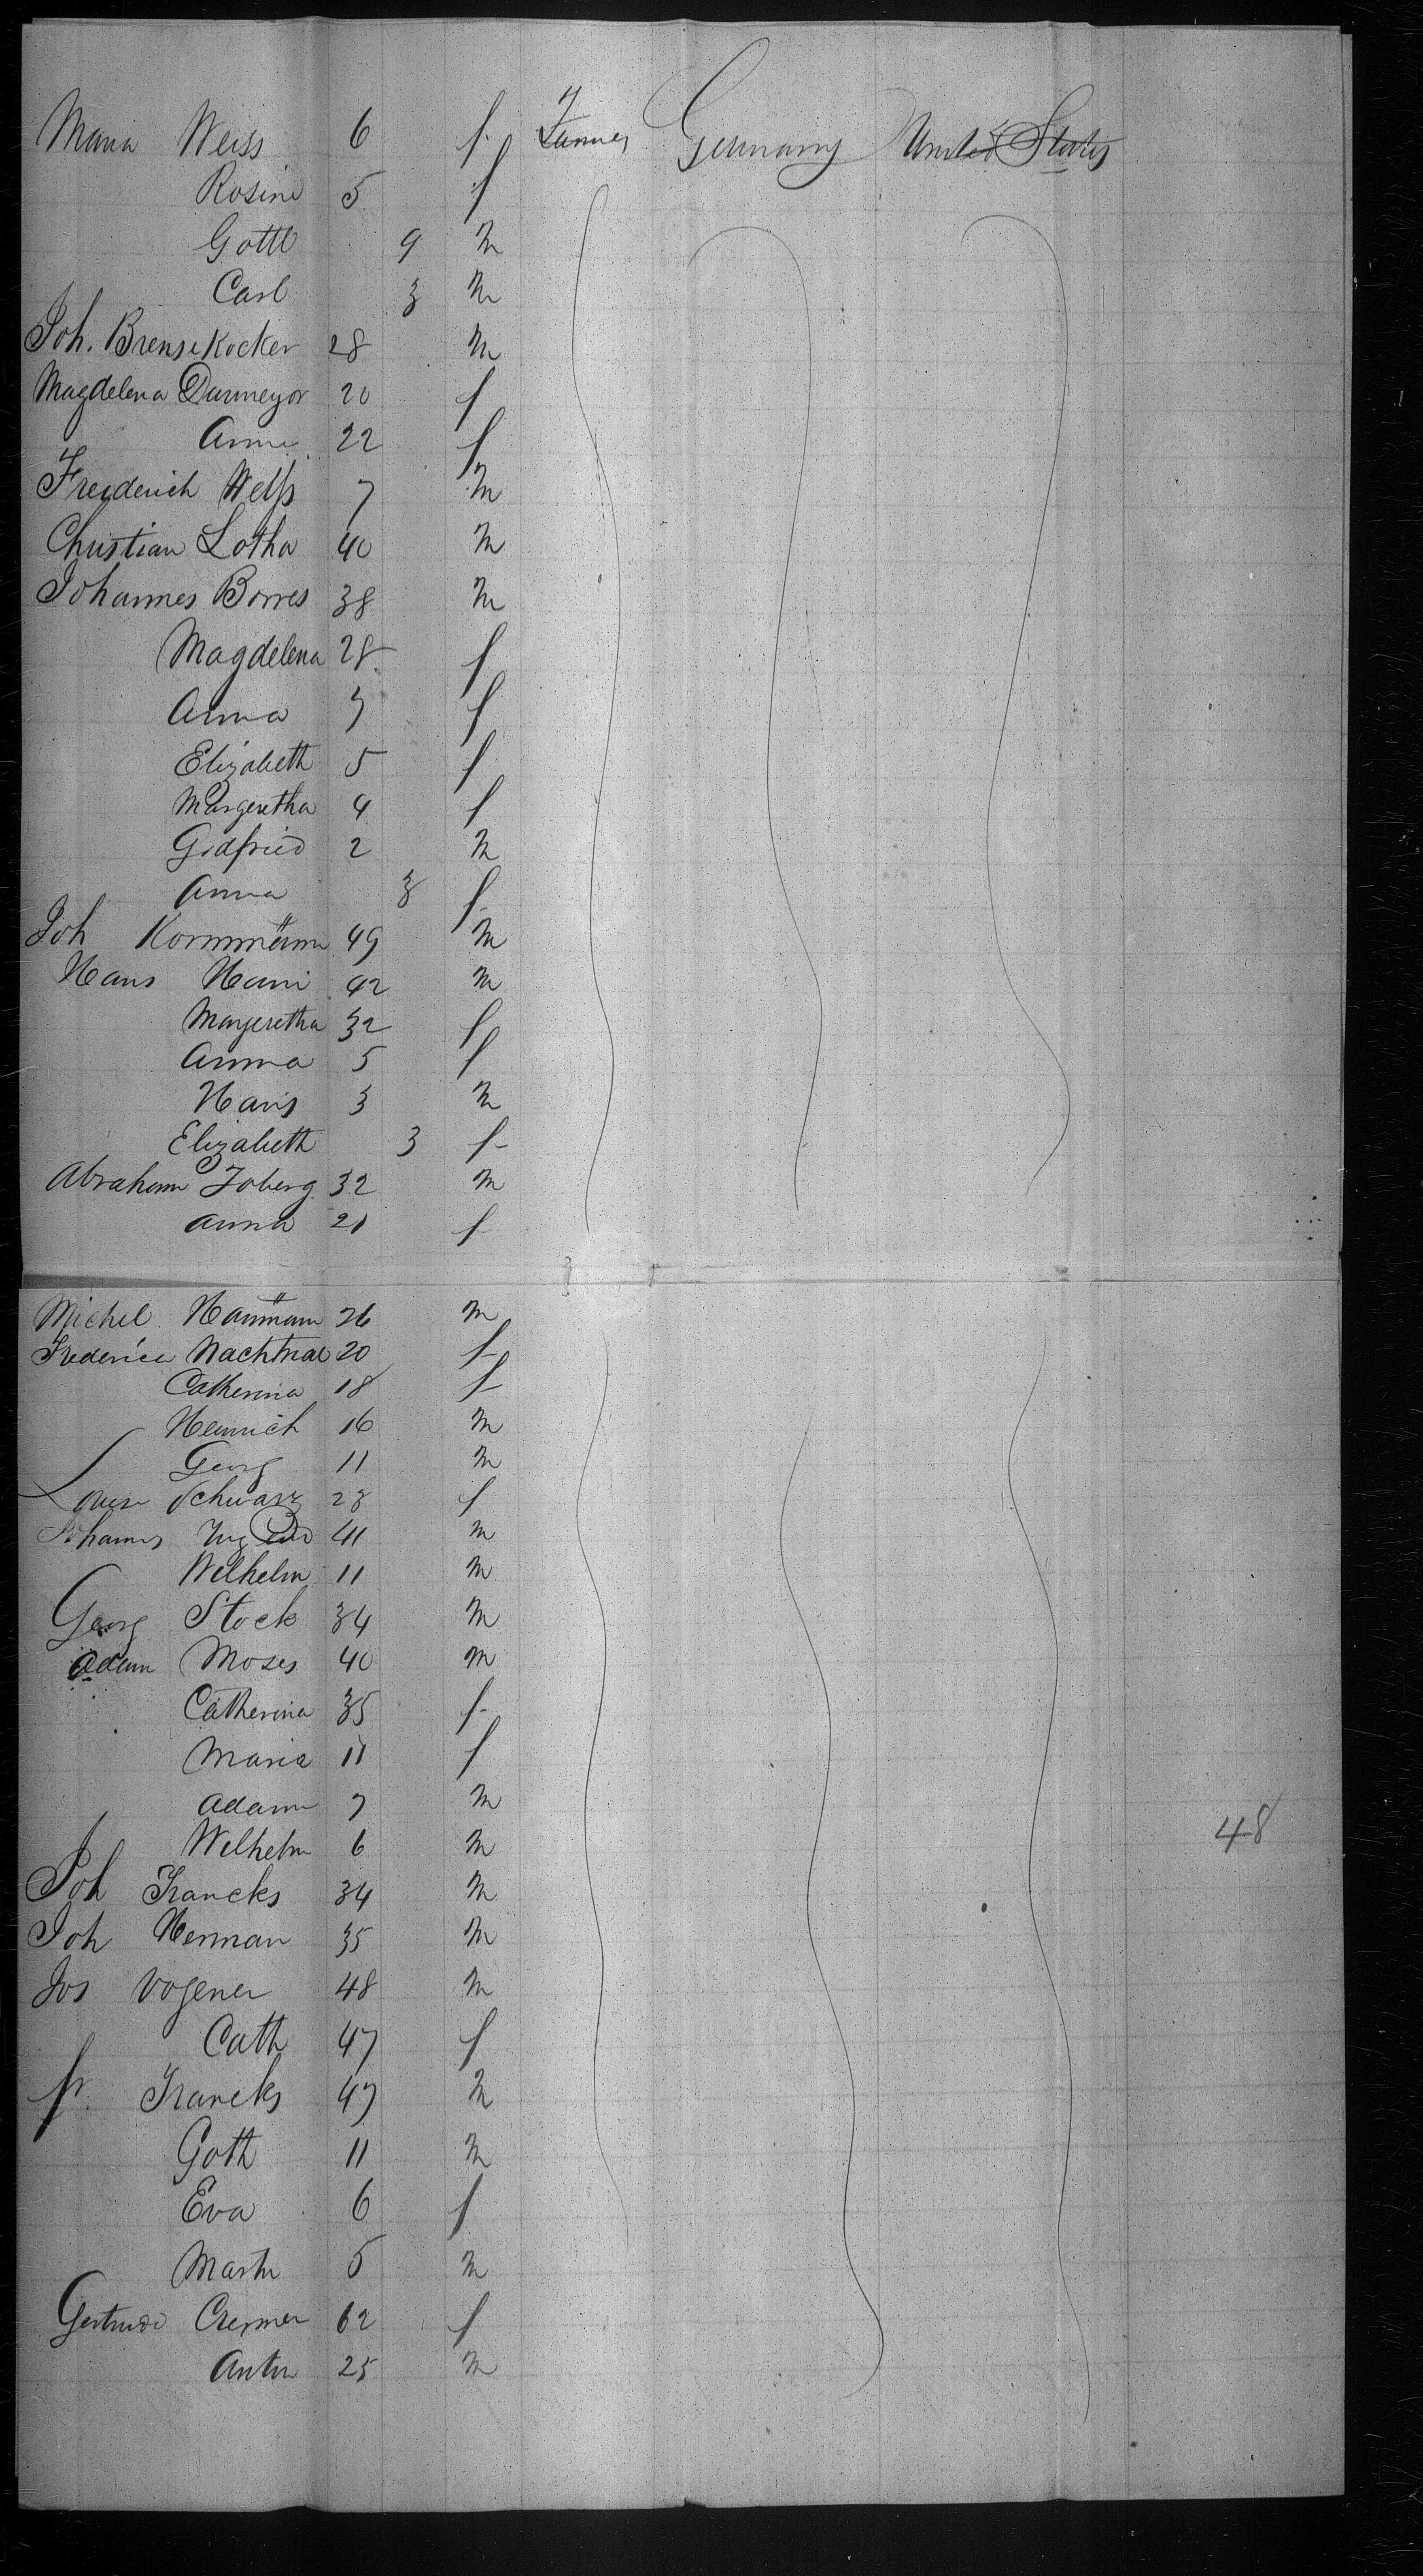 Maria Weiss 6 f. Farmer Germany United States
Rosine 5 f
Gottl 9 m
Carl 3 m
Joh. Brensekocker 28 m
Magdelena Durmeyor 20 f
Anna 22 f
Freiderich Welss 7 m
Christian Lotha 40 m
Johannes Borres 38 m
Magdelena 28 f
Anna 7 f
Elizabeth 5 f
Margeretha 4 f
Godfried 2 m
Anna 3 f
Joh Kornmann 49 m
Hans Hani 42 m
Margeretha 32 f
Anna 5 f
Hans 3 m
Elizabeth 3 f
Abraham Joberg 32 m
Anna 21 f
Michel Haumann 26 m
Frederica Nachtnae 20 f
Catherina 18 f
Heinrich 16 m
Georg 11 m
Louise Schwarz 28 f
Johannes 41 m
Wilhelm 11 m
Georg Stock 34 m
Adam Moses 40 m
Catherina 35 f
Maria 11 f
Adam 7 m
Wilhelm 6 m 48
Joh Francks 34 m
Joh Herman 35 m
Jos Vogener 48 m
Cath 47 f
fr. Francks 47 m
Goth 11 m
Eva 6 f
Martn 5 m
Gertrude Cremer 62 f
Anton 25 m